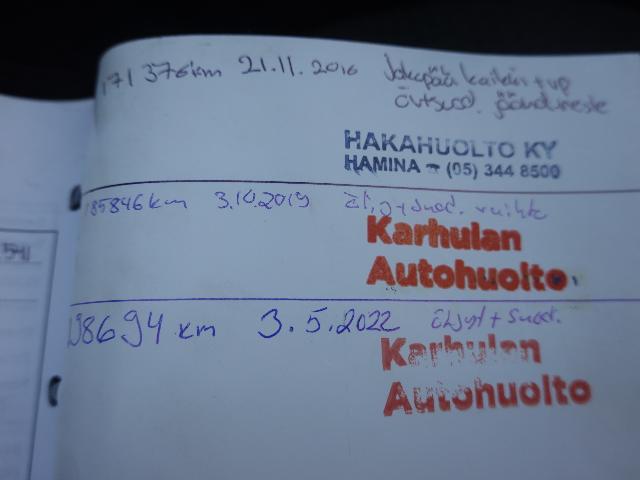 171 376km 21.11.2016 Jakopää kaikin + vp
öv+suod. jäähd.neste
HAKAHUOLTO KY
HAMINA ☎ (05) 344 8500
185846km 3.10.2019 öljy+suod. vaihto
Karhulan
Autohuolto
198694 km 3.5.2022 öljyt + suod.
Karhulan
Autohuolto
541